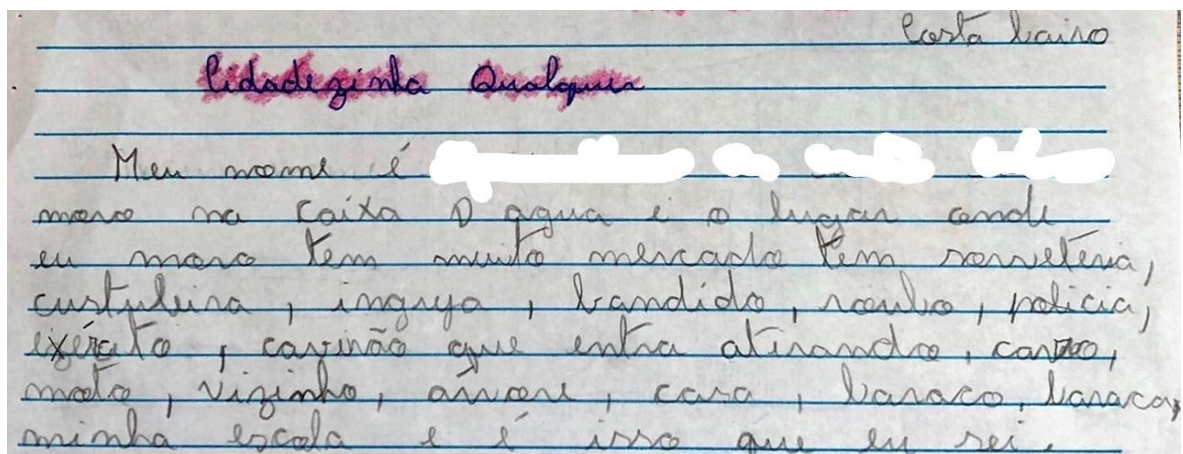 Costa bairo
Cidadezinha Qualquer
Meu nome é
moro na Caixa D agua e o lugar aonde
eu moro tem muito mercado tem sorveteria,
custuleira, ingreja, bandido, roubo, policia,
exército, cavirão que entra atirando, carro,
moto, vizinho, arvore, casa, baraco, baraca,
minha escola e é isso que eu sei.